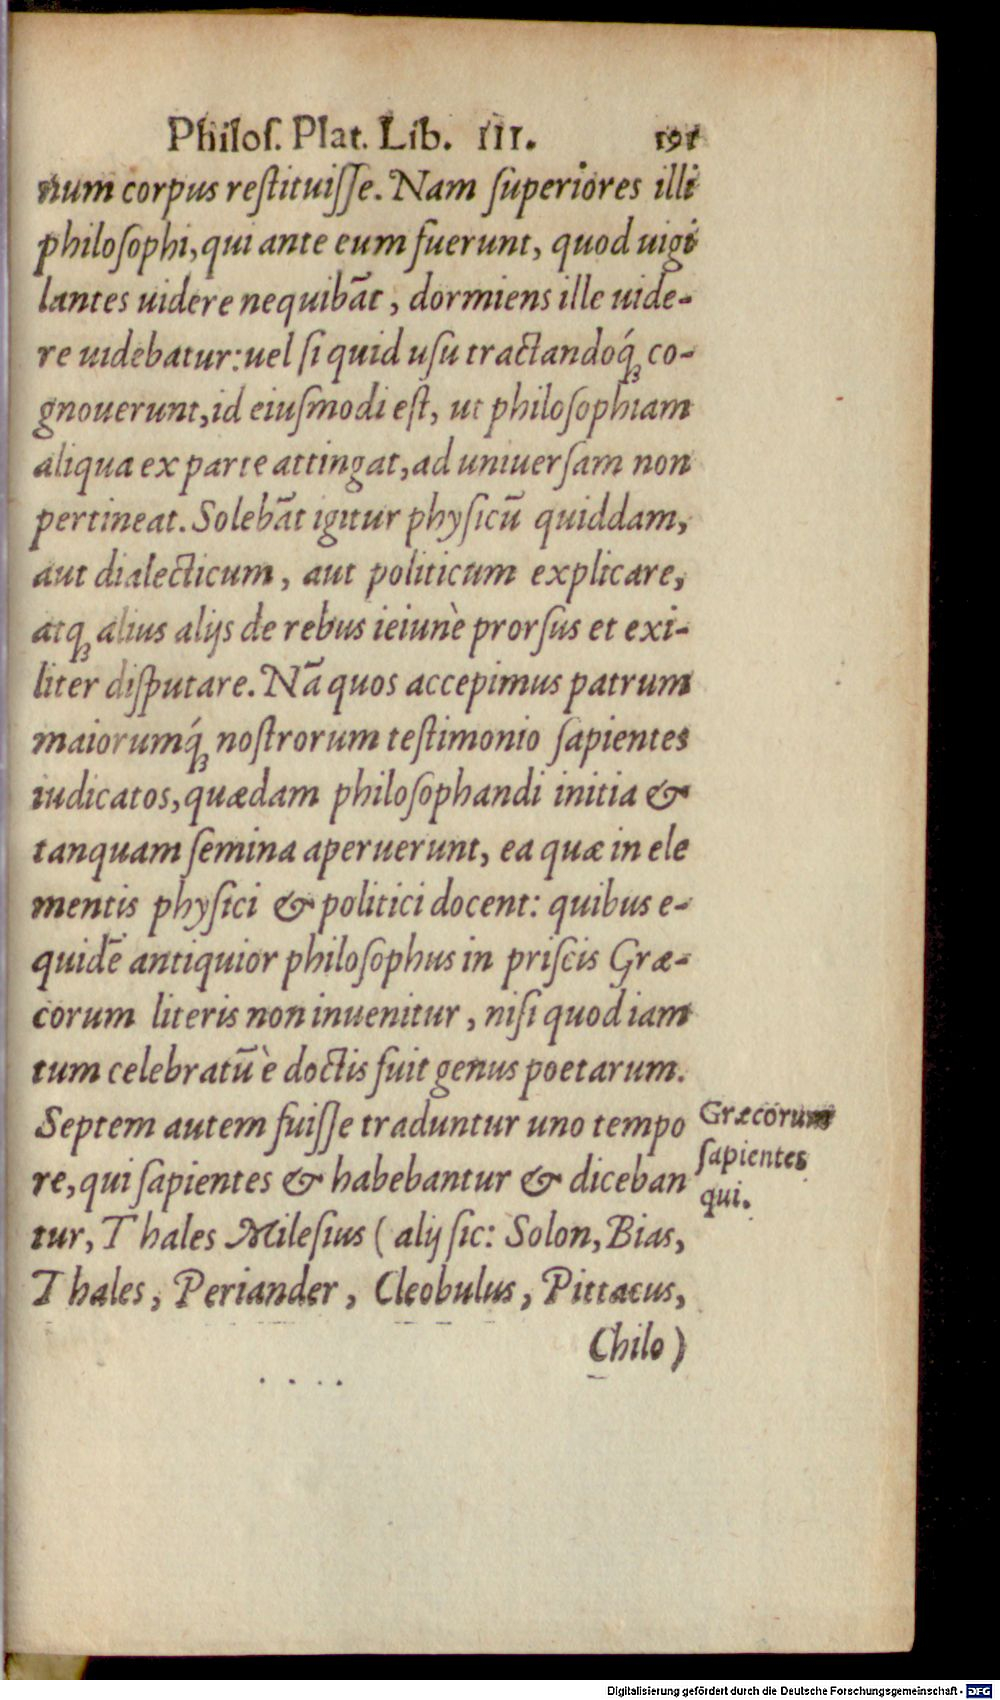 Philoſ. Plat. Lib. III. 191
num corpus reſtituiſſe. Nam ſuperiores illi
philoſophi, qui ante eum fuerunt, quod uigi
lantes uidere nequibāt, dormiens ille uide-
re uidebatur: uel ſi quid uſu tractandoq́ꝫ co-
gnouerunt, id eiuſmodi eſt, ut philoſophiam
aliqua ex parte attingat, ad uniuerſam non
pertineat. Solebāt igitur phyſicū quiddam,
aut dialecticum, aut politicum explicare,
atqꝫ alius alijs de rebus ieiunè prorſus et exi-
liter diſputare. Nā quos accepimus patrum
maiorumq́ꝫ noſtrorum teſtimonio ſapientes
iudicatos, quædam philoſophandi initia &
tanquam ſemina aperuerunt, ea quæ in ele
mentis phyſici & politici docent: quibus e-
quidē antiquior philoſophus in priſcis Græ-
corum literis non inuenitur, niſi quod iam
tum celebratū è doctis fuit genus poetarum.
Septem autem fuiſſe traduntur uno tempo
re, qui ſapientes & habebantur & diceban
tur, Thales Mileſius ( alij ſic: Solon, Bias,
Thales, Periander, Cleobulus, Pittacus,
Chilo )
Græcorum
ſapientes
qui.
Digitalisierung gefördert durch die Deutsche Forschungsgemeinschaft - DFG